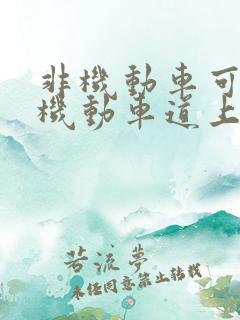 非機動車可
機動車道上
若流夢
未经同意禁止转载